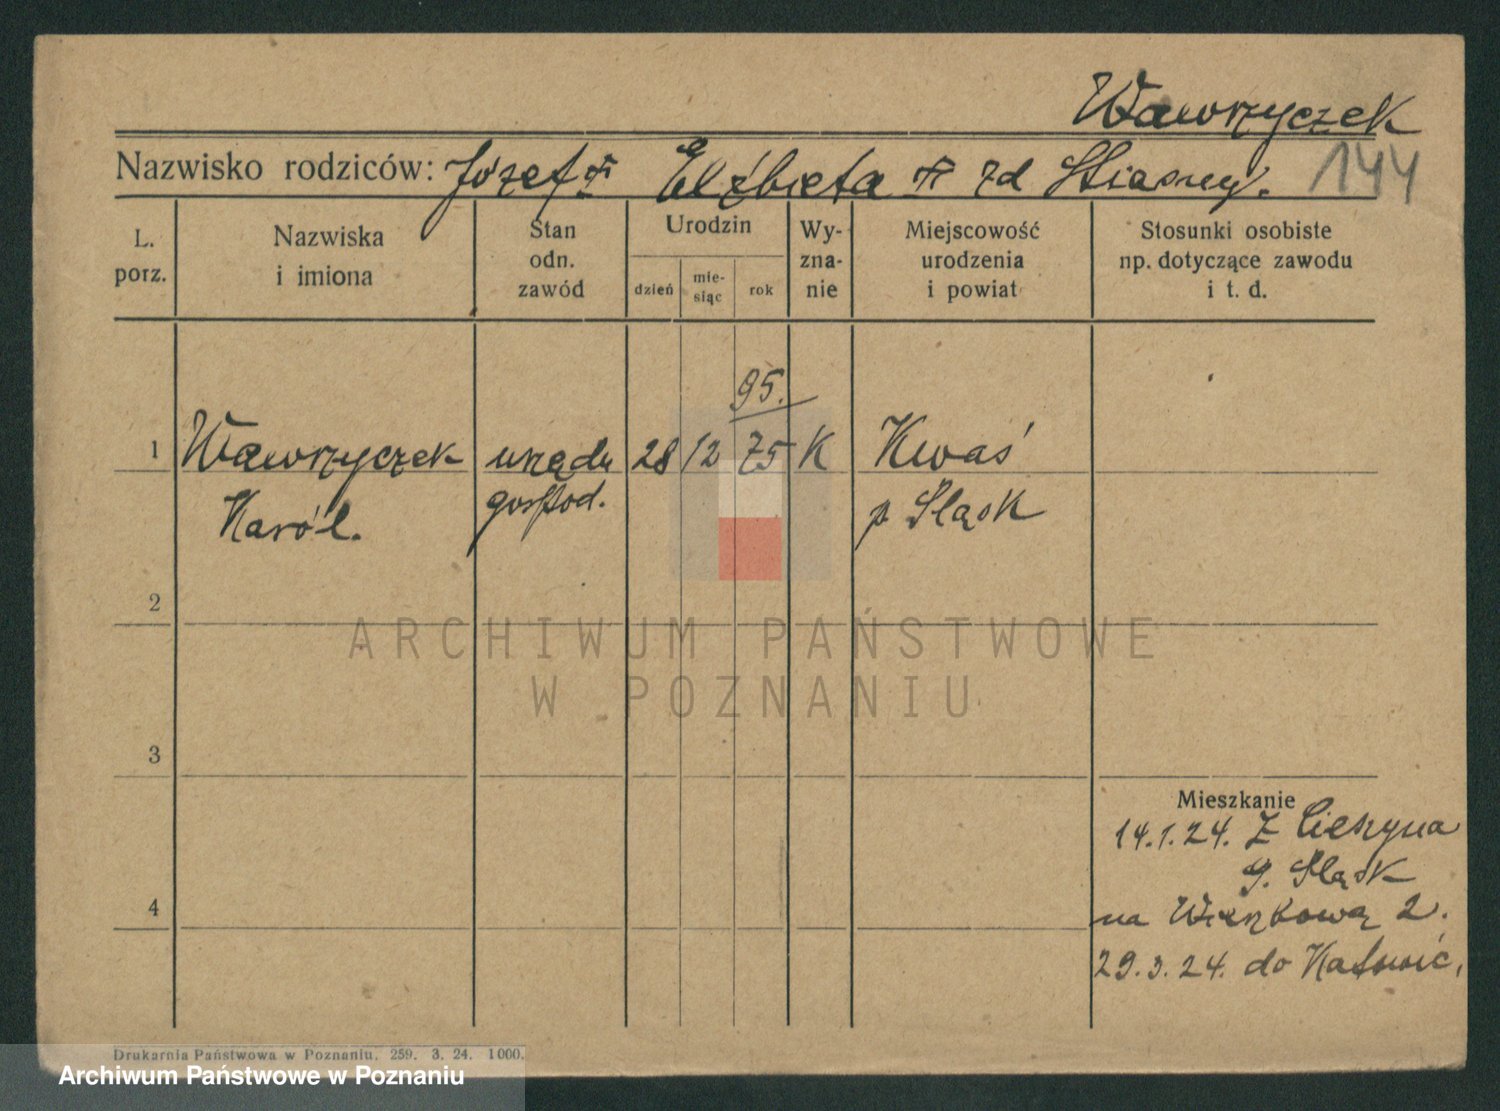 Wawrzyczek
Nazwisko rodziców: Józef Elżbieta zd Stiasny. 144
L. porz.
Nazwiska i imiona
Stan odn. zawód
Urodzin
dzień
mie-
siąc
rok
Wy-
zna-
nie
Miejscowość
urodzenia
i powiat
Stosunki osobiste
np. dotyczące zawodu
i t. d.
95.
1 Wawrzyczek urzędn 28 12 75 K Kwaś
Karól. gospod. p Śląsk
2
ARCHIWUM PAŃSTWOWE
W POZNANIU
3
Mieszkanie
14.1.24. Z Cieszyna
g. Śląsk
4
na Wierzbową 2.
29.3.24. do Katowic.
Drukarnia Państwowa w Poznaniu. 259. 3. 24. 1000.
Archiwum Państwowe w Poznaniu